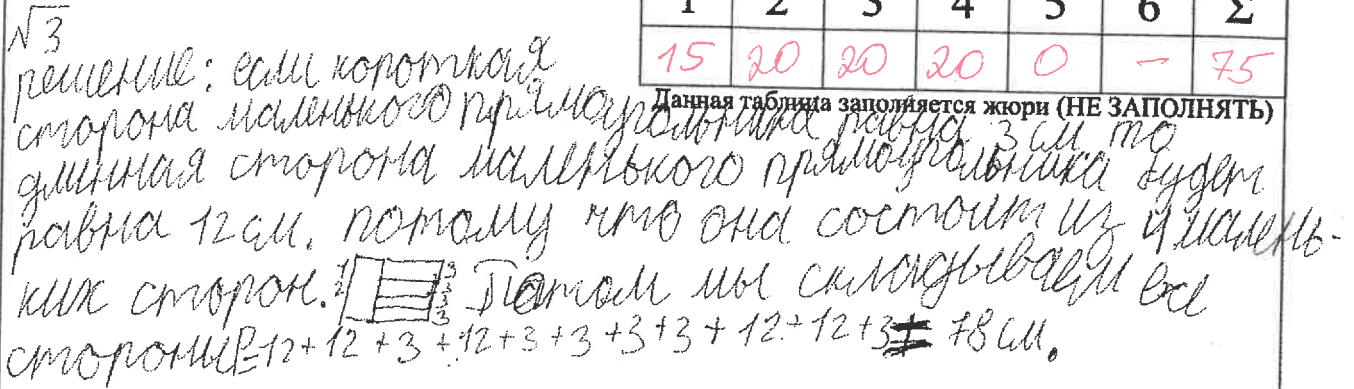 1 2 3 4 5 6 Σ
15 20 20 20 0 — 75
Данная таблица заполняется жюри (НЕ ЗАПОЛНЯТЬ)
√3
решение: если короткая
сторона маленького прямоугольника равна 3 см то
длинная сторона маленького прямоугольника будет
равна 12 см. потому что она состоит из 4 малень-
ких сторон. 12 3 3 3 3 Потом мы складываем все
стороны P=12+12+3+12+3+3+3+3+12+12+3= 78 см.